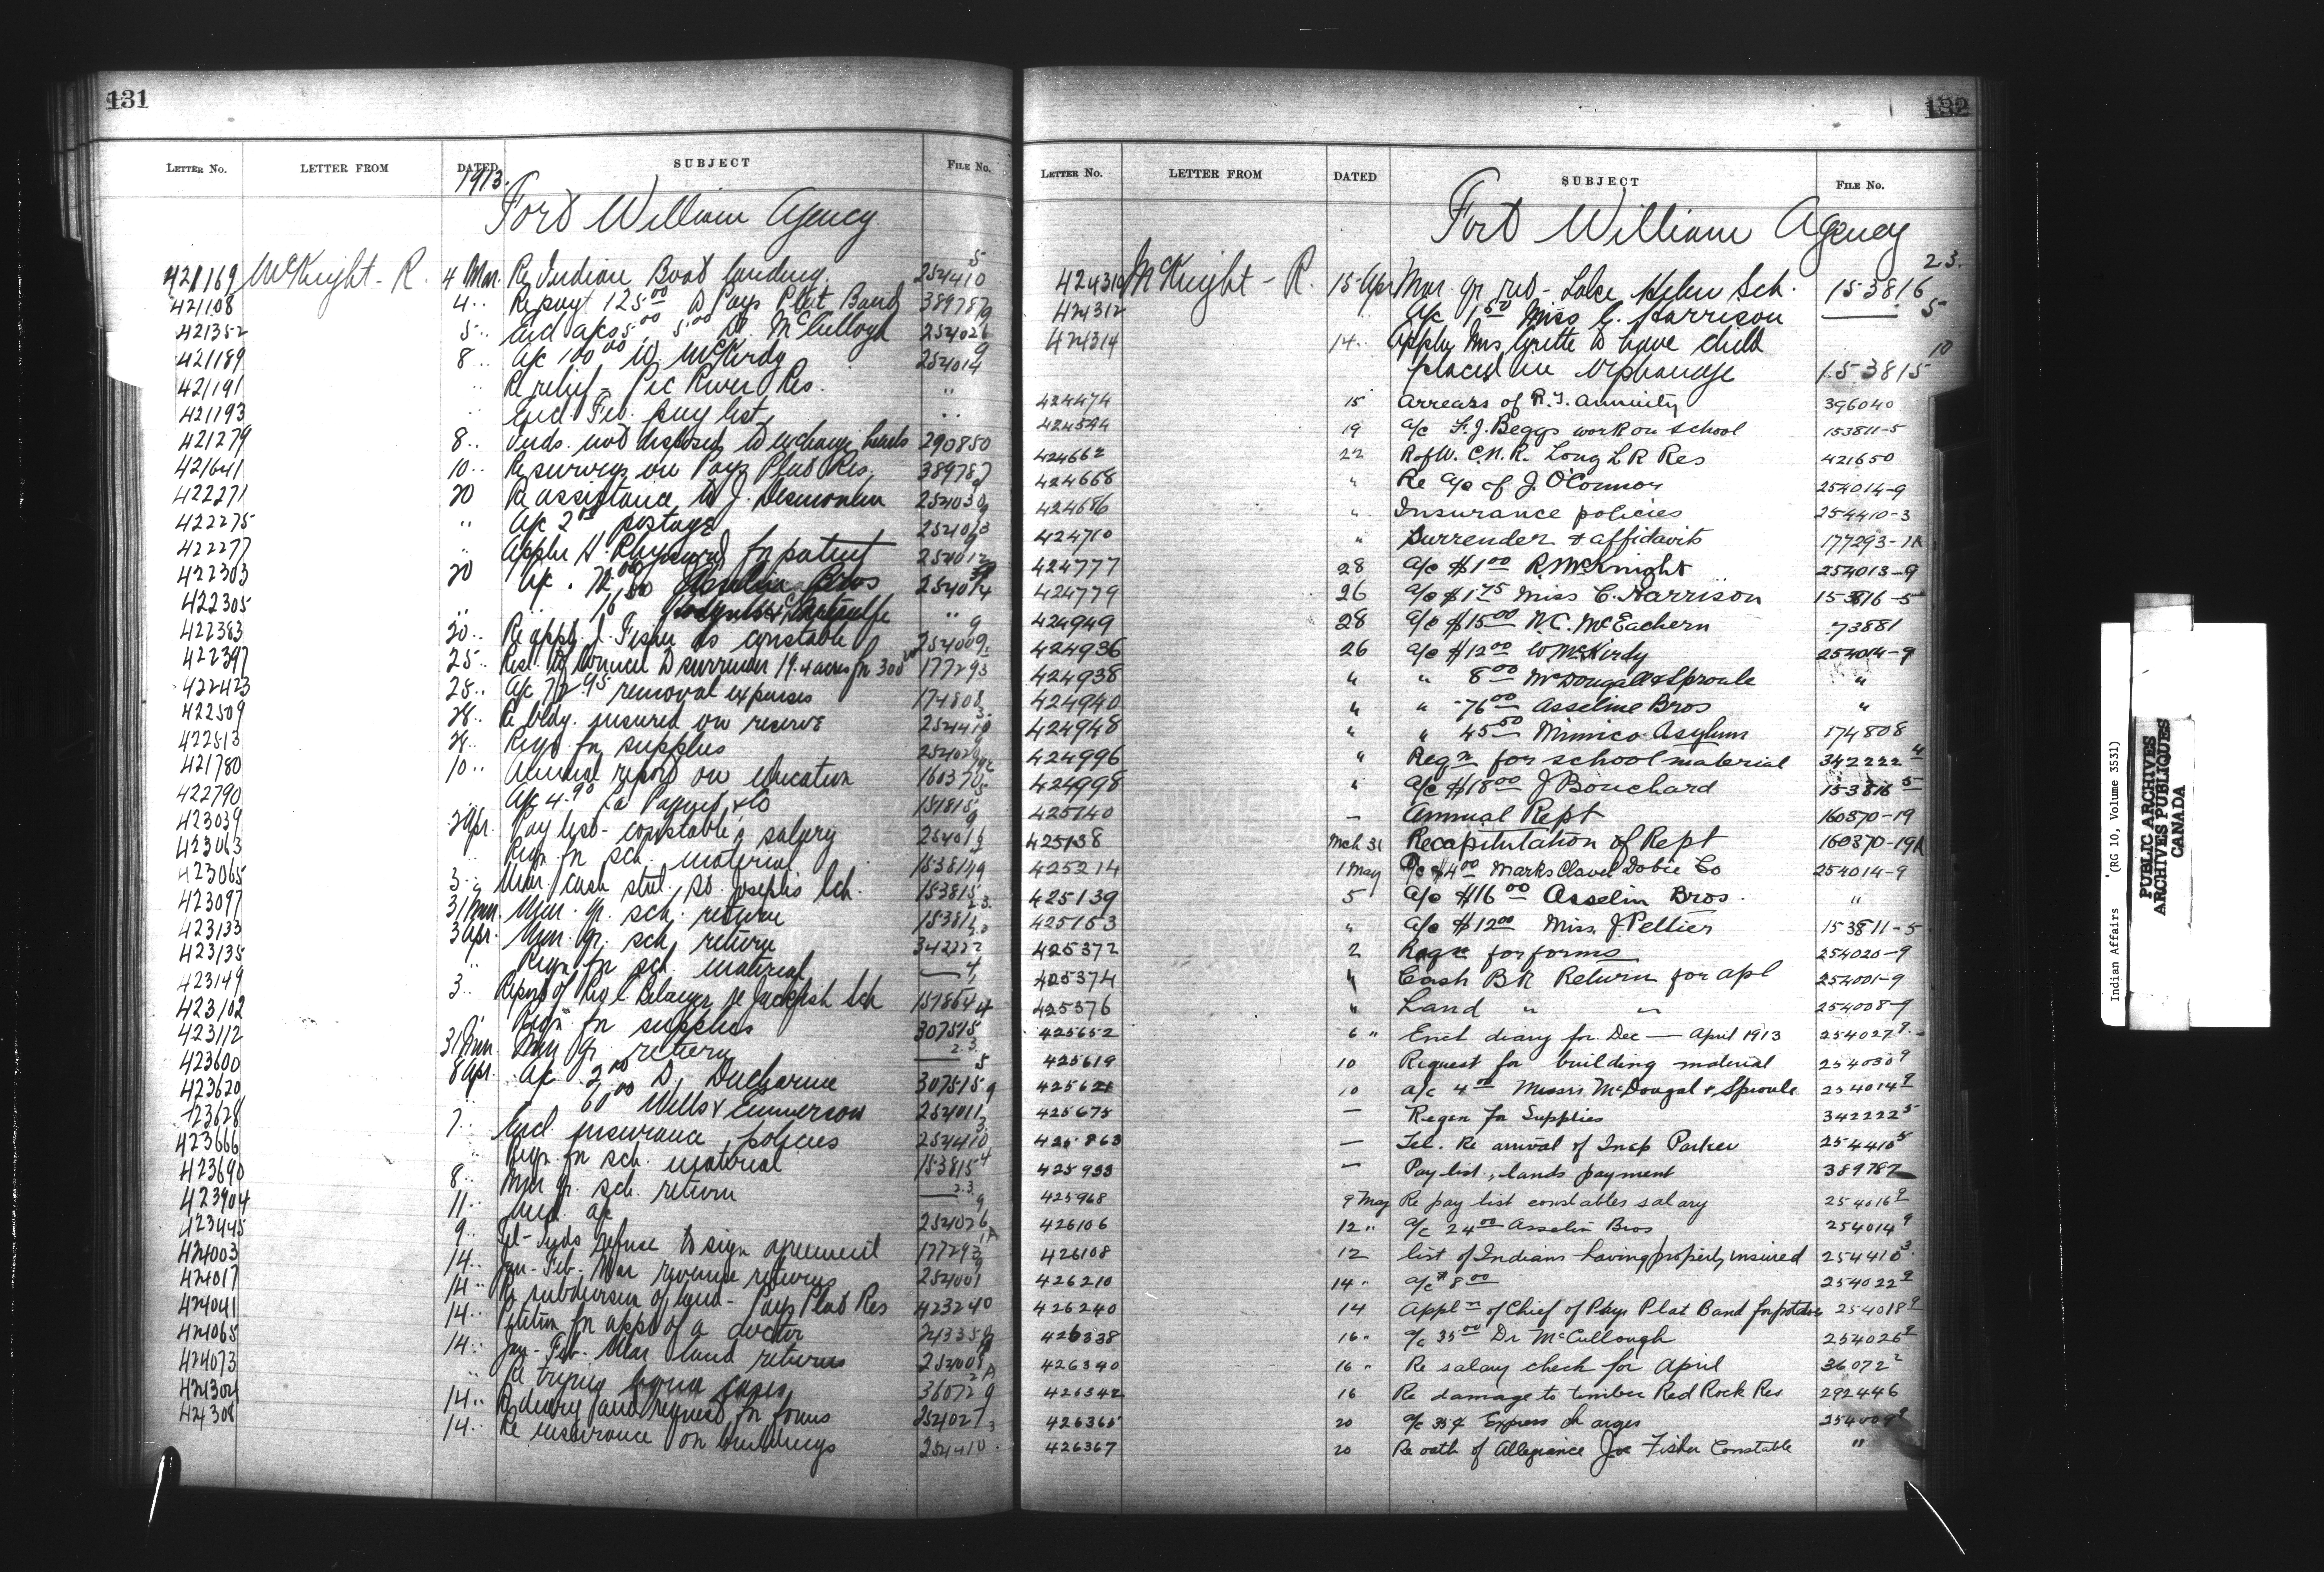 131
LETTER No. LETTER FROM DATED SUBJECT FILE No.
1913.
Fort William Agency
421169 McKnight - R. 4 Mar. Re Indian Boat landing. 254410 5
421108 4 .. Re payt 125.00 to Pays Plat Band 389787
421352 5 .. Encl a/cs 5.00 5.00 Dr McCullogh 254026 9
421189 8 .. a/c 100.00 W. McKirdy 254014 9
421191 .. Re relief - Pic River Res. ..
421193 .. Encl Feb. pay list ..
421279 8 .. Inds. not disposed to exchange lands 290850
421641 10 .. Re surveys on Pays Plat Res. 389787
422271 20 Re assistance to J. Desmoulin 254030 9
422275 .. a/c postage 254013 9
422277 .. Appln H. for patent 254012 9
422303 20 a/c . 72.00 Asselin Bros 254014 9
422305 .. 16.50 ..
422383 20 .. Re appt. J. Fisher as constable 254009 9
422397 25 .. Resl. of Council to surrender 19.4 acres for 300 177293
422423 25 .. a/c 72.95 removal expenses 174808
422509 28 .. Re bldg. insured on reserve 254410 3
422513 28 .. Reqn for supplies 254020 9
421780 10 .. Annual report on education 160370
422790 a/c 4.90 Co 151815 5
423039 2 Apr. Pay list - constable's salary 254016 9
423063 .. Reqn for sch. material 153814
423065 3 .. Mar. cash stat. St. Joseph's Sch. 153815
423097 31 Mar. Mar. qr. sch. return 153811 23
423133 3 Apr. Mar. qr. sch. return 342222 23
423135 .. Reqn for sch. material —— 4
423149 3 .. Report of Rev. C. Belanger re Jackfish Sch 151864
423102 Reqn for supplies 307515 4
423112 31 Mar. Mar qr. return —— 23
423600 8 Apr. a/c 2.00 D. Ducharme 307515 5
423620 .. 60.00 Wells & Emmerson 254011 9
423628 7 .. Encl. insurance policies 254410 3
423666 .. Reqn for sch. material 153815 4
423690 8 .. Mar qr. sch. return —— 23
423904 11 .. Med. a/c 254026 9
423445 9 .. Tel - Inds refuse to sign agreement 177293 1A
424003 14 .. Jan - Feb - Mar revenue returns 254001 9
424017 14 .. Re subdivision of land - Pays Plat Res 423240
424041 14 .. Petition for appt of a doctor 243358
424065 14 .. Jan - Feb - Mar land returns 254008 9
424073 .. Re trying liquor cases 36072 2A
424304 14 .. Re diary and request for forms 254027 9
424308 14 .. Re insurance on buildings 254410 3
132
LETTER No. LETTER FROM DATED SUBJECT FILE No.
Fort William Agency
424310 McKnight - R. 15 Apr Mar. qr ret - Lake Helen Sch. 153816 23.
424312 " a/c 1.50 Miss C. Harrison —— 5
424314 14 .. Appln Mrs Gritte to have child
placed in Orphanage 153815 10
424474 15 Arrears of R.T. annuity 396040
424594 19 a/c F. J. Beggs work on school 153811-5
424662 22 R of W. C.N.R. Long L R Res 421650
424668 " Re a/c of J. O'Connor 254014-9
424686 " Insurance policies 254410-3
424710 " Surrender & affidavits 177293-1A
424777 28 a/c $1.00 R. McKnight 254013-9
424779 26 a/c $1.75 Miss C. Harrison 153816-5
424949 28 a/c $15.00 N.C. McEachern 73881
424936 26 a/c $12.00 W McKirdy 254014-9
424938 " " 8.00 McDougall & Sproule "
424940 " " 76.00 Asseline Bros "
424948 " " 45.50 Mimico Asylum 174808
424996 " Reqn for school material 342222 4
424998 " a/c $18.00 J Bouchard 153816 5
425140 — Annual Rept 160370-19
425138 Mch 31 Recapitulation of Rept 160370-19A
425214 1 May a/c $4.00 Marks Clavet Dobie Co 254014-9
425139 5 a/c $16.00 Asselin Bros. "
425163 " a/c $12.00 Miss J Peltier 153811-5
425372 2 Reqn for forms 254020-9
425374 " Cash Bk Return for Apl 254001-9
425376 " Land " " 254008-9
425652 6 " Encl diary for Dec — April 1913 254027 9
425619 10 Request for building material 254030 9
425621 10 a/c 4.00 Messrs McDougal & Sproule 254014 9
425675 — Reqn for Supplies 342222 5
425863 — Tel. Re arrival of Insp Parker 254410 5
425933 — Pay list, lands payment 389787
425968 9 May Re pay list constables salary 254016 9
426106 12 " a/c 24.00 Asselin Bros 254014 9
426108 12 list of Indians having property insured 254410 3
426210 14 " a/c $8.00 254022 9
426240 14 Appln of Chief of Pays Plat Band for potatoes 254018 9
426338 16 " a/c 35.00 Dr McCullough 254026 9
426340 16 " Re salary check for April 36072 2
426342 16 Re damage to timber Red Rock Res 292446
426365 20 a/c 35¢ Express charges 254009 9
426367 20 Re oath of Allegiance Joe Fisher Constable "
Indian Affairs (RG 10, Volume 3531)
PUBLIC ARCHIVES
ARCHIVES PUBLIQUES
CANADA